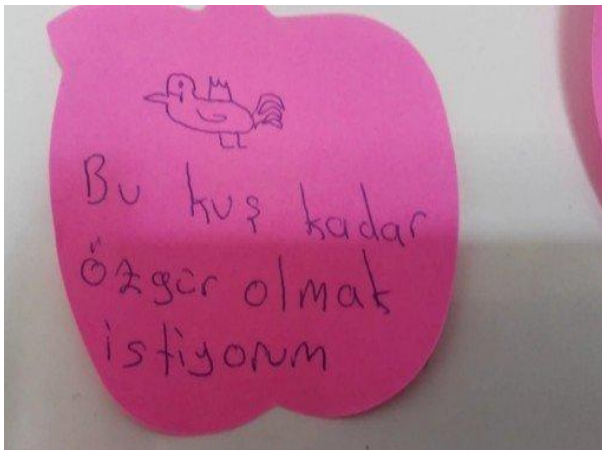 Bu kuş kadar
özgür olmak
istiyorum